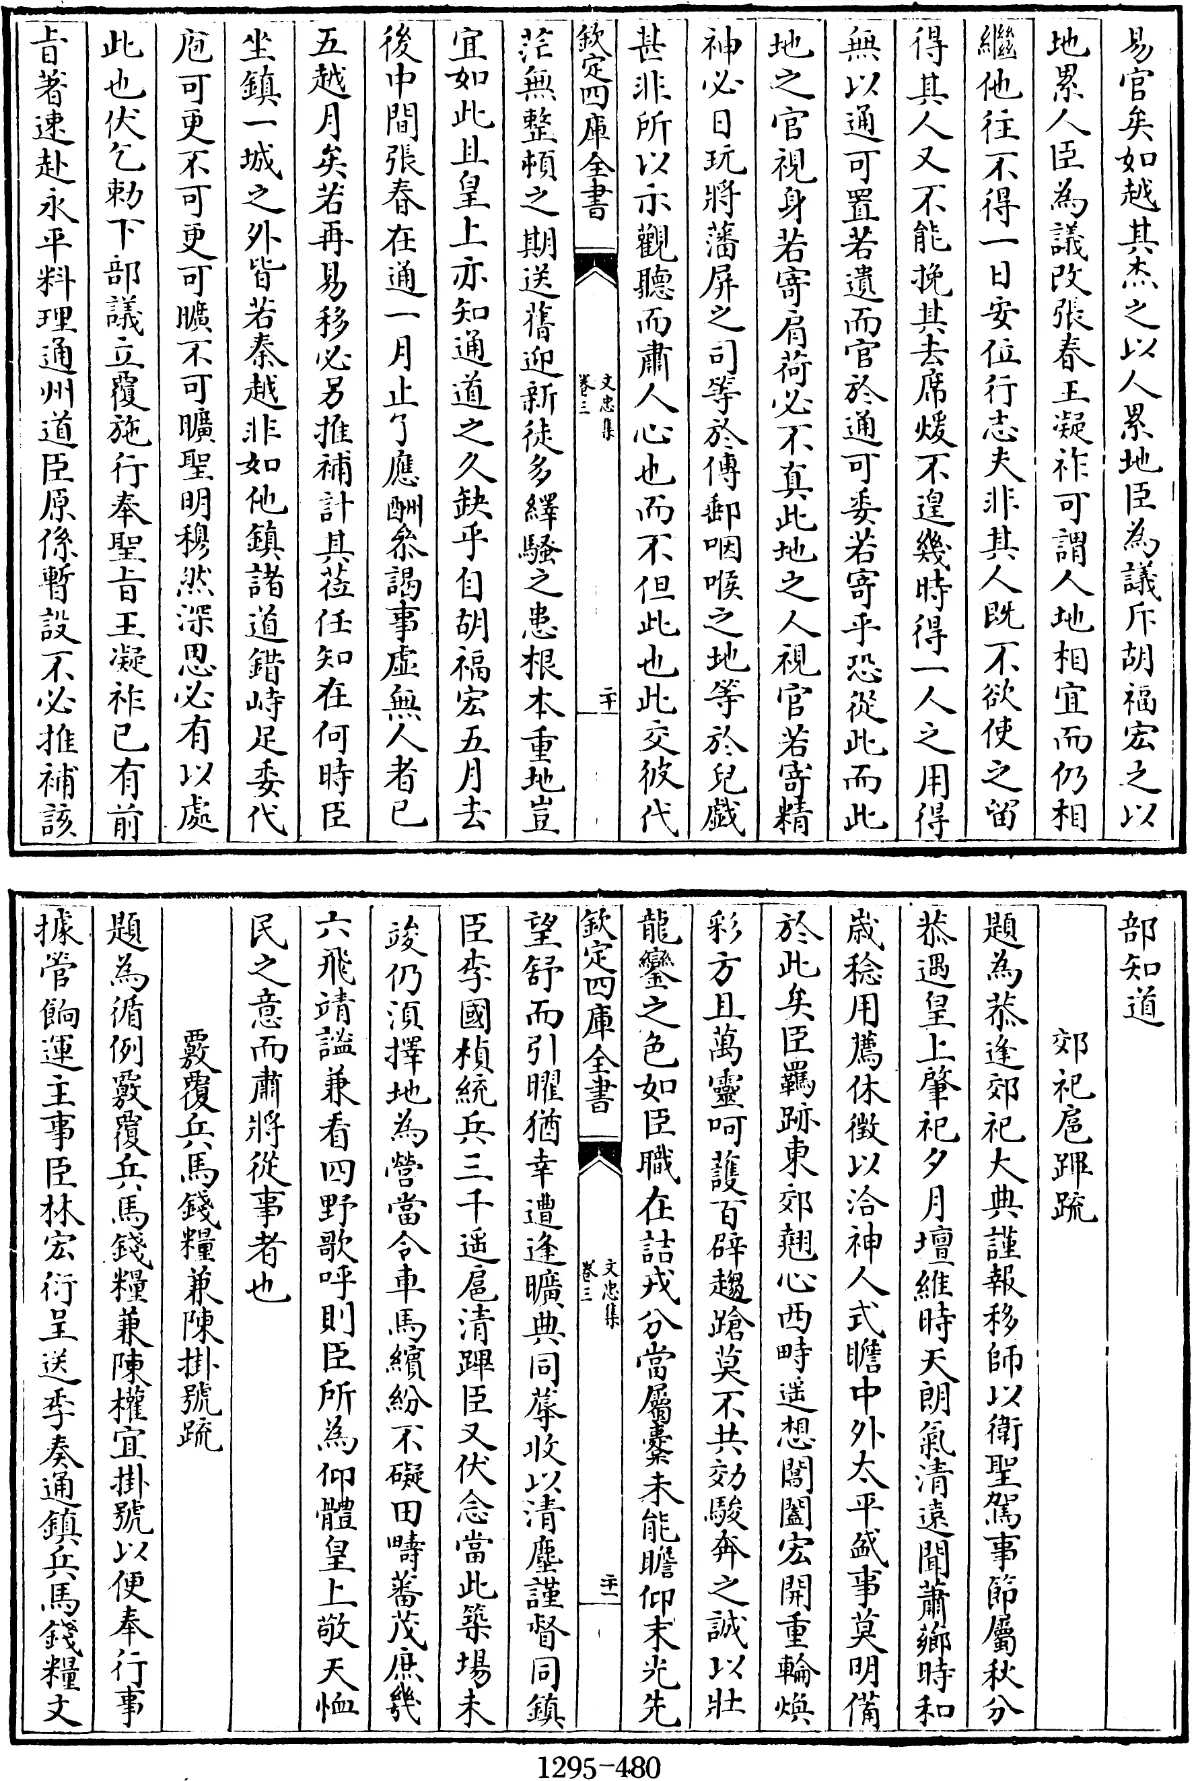 易官矣如越其杰之以人累地臣為議斥胡福宏之以
地累人臣為議改張春王凝祚可謂人地相宜而仍相
繼他往不得一日安位行志夫非其人既不欲使之留
得其人又不能挽其去席煖不遑幾時得一人之用得
無以通可置若遺而官於通可委若寄乎恐從此而此
地之官視身若寄肩荷必不真此地之人視官若寄精
神必日玩將藩屏之司等於傳郵咽喉之地等於兒戲
甚非所以示觀聽而肅人心也而不但此也此交彼代
欽定四庫全書
文忠集
卷三
二十
茫無整頓之期送舊迎新徒多繹騷之患根本重地豈
宜如此且皇上亦知通道之久缺乎自胡福宏五月去
後中間張春在通一月止了應酬叅謁事虛無人者已
五越月矣若再易移必另推補計其蒞任知在何時臣
坐鎮一城之外皆若秦越非如他鎮諸道錯峙足委代
庖可更不可更可曠不可曠聖明穆然深思必有以處
此也伏乞勅下部議立覆施行奉聖旨王凝祚已有前
旨著速赴永平料理通州道臣原係暫設不必推補該
部知道
郊祀扈蹕疏
題為恭逢郊祀大典謹報移師以衛聖駕事節屬秋分
恭遇皇上肇祀夕月壇維時天朗氣清遠聞蕭薌時和
歲稔用薦休徵以洽神人式瞻中外太平盛事莫明備
於此矣臣羈跡東郊翹心西畤遥想閶闔宏開重輪煥
彩方且萬靈呵護百辟趨蹌莫不共効駿奔之誠以壯
龍鑾之色如臣職在詰戎分當屬櫜未能瞻仰末光先
欽定四庫全書
文忠集
卷三
二十一
望舒而引曜猶幸遭逢曠典同蓐收以清塵謹督同鎮
臣李國楨統兵三千遥扈清蹕臣又伏念當此築場未
竣仍須擇地為營當令車馬繽紛不礙田疇蕃茂庶幾
六飛靖謐兼看四野歌呼則臣所為仰體皇上敬天恤
民之意而肅將從事者也
覈覆兵馬錢糧兼陳掛號疏
題為循例覈覆兵馬錢糧兼陳權宜掛號以便奉行事
據管餉運主事臣林宏衍呈送季奏通鎮兵馬錢糧文
1295-480